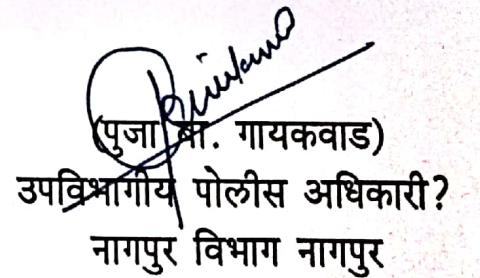 (पुजा बा. गायकवाड)
उपविभागीय पोलीस अधिकारी?
नागपुर विभाग नागपुर